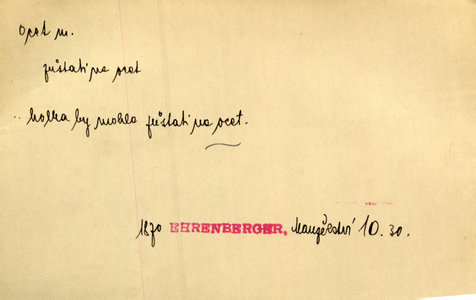 Ocet m.
zůstati na ocet
.. holka by mohla zůstati na ocet.
1870 EHRENBERGER, Manželství 10. 30.